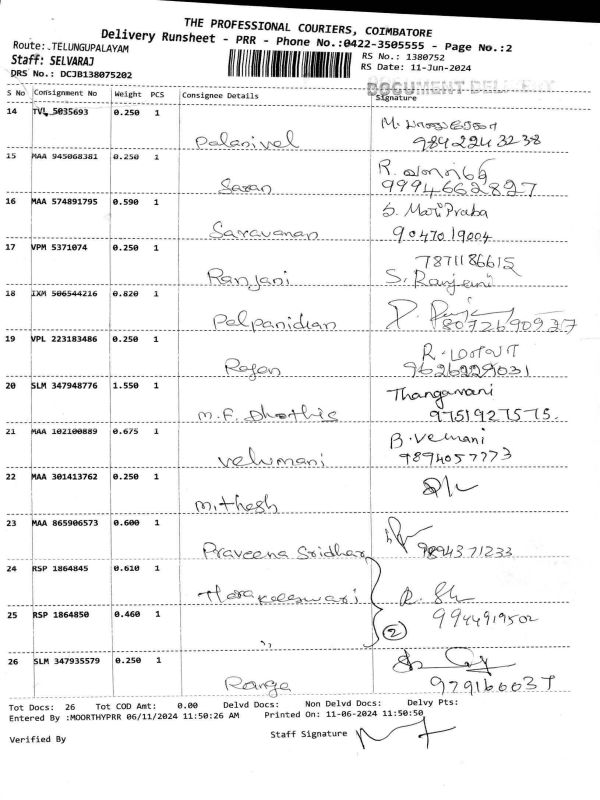 THE PROFESSIONAL COURIERS, COIMBATORE
Delivery Runsheet - PRR - Phone No.:0422-3505555 - Page No.:2
Route:.TELUNGUPALAYAM
RS No.: 1380752
Staff: SELVARAJ
RS Date: 11-Jun-2024
DRS No.: DCJB138075202
DOCUMENT DELIVERY
S No Consignment No Weight PCS Consignee Details Signature
14 TVL 5035693 0.250 1 Palanivel M.
9842243238
15 MAA 945068381 0.250 1 Saran R.
9994662827
16 MAA 574891795 0.590 1 Saravanan S. Mari Praba
9047019004
17 VPM 5371074 0.250 1 Ranjani 7871186615
S. Ranjani
18 IXM 506544216 0.820 1 Palpanidian
8072690937
19 VPL 223183486 0.250 1 Rajan R.
9626229031
20 SLM 347948776 1.550 1 M.F. Thangamani
9751927575.
21 MAA 102100889 0.675 1 Velumani B. Velmani
9894057773
22 MAA 301413762 0.250 1 Mithesh
23 MAA 865906573 0.600 1 Praveena Sridhar 9894371233
24 RSP 1864845 0.610 1
25 RSP 1864850 0.460 1 " 9944919502
2
26 SLM 347935579 0.250 1 Ranga
Tot Docs: 26 Tot COD Amt: 0.00 Delvd Docs: Non Delvd Docs: Delvy Pts:
Entered By :MOORTHYPRR 06/11/2024 11:50:26 AM Printed On: 11-06-2024 11:50:50
Verified By Staff Signature